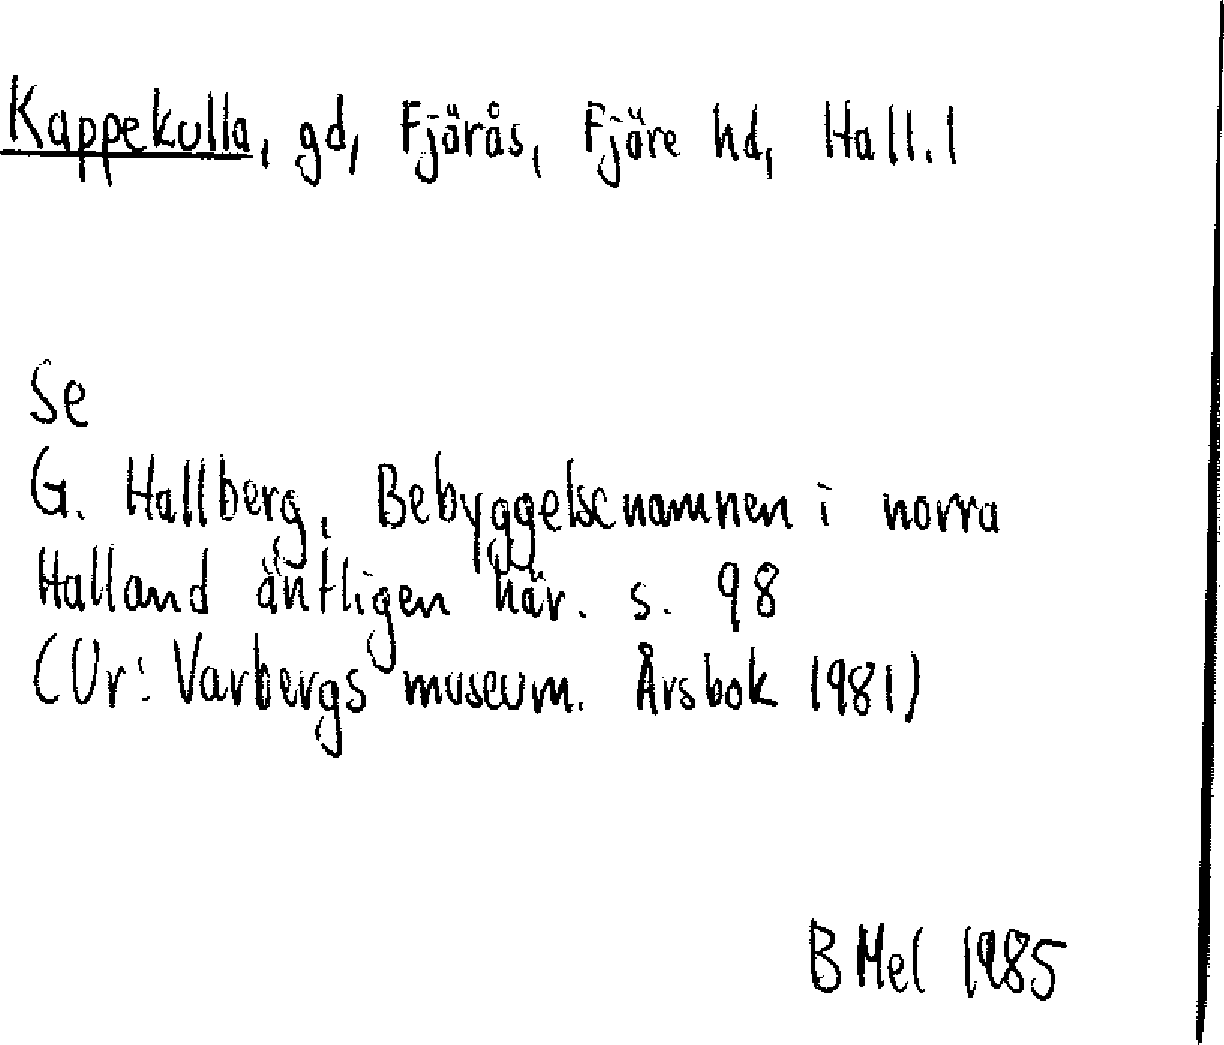 Kappekulla, gd, Fjärås, Fjäre hd, Hall. l
Se
G. Hallberg, Bebyggelsenamnen i norra
Halland äntligen här. s. 98
(Ur: Varbergs museum. Årsbok 1981)
B Mel 1985